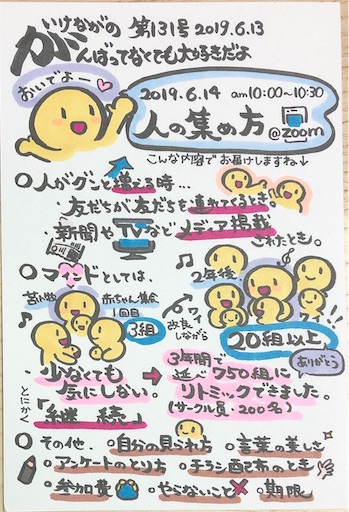 いけながの 第131号 2019.6.13
がんばってなくても大好きだよ
おいでよー♡
2019.6.14 am10:00~10:30
人の集め方 @zoom
こんな内容でお届けしますね↓
○人がグンと増える時…
・友だちが友だちを連れてくるとき。
・新聞やTVなどメディア掲載
されたとき。
○マインドとしては、
苦い物 赤ちゃん集会
1回目
3組
ワイ
改良しながら
2年後
ワイワイ
20組以上
ありがとう
とにかく
少なくても
気にしない。
「継続」
→ 3年間で
延べ750組に
リトミックできました。
(サークル員・200名)
○その他 ○自分の見られ方 ○言葉の美しさ
○アンケートのとり方 ○チラシ配布のとき
○参加費 ○やらないこと ○期限